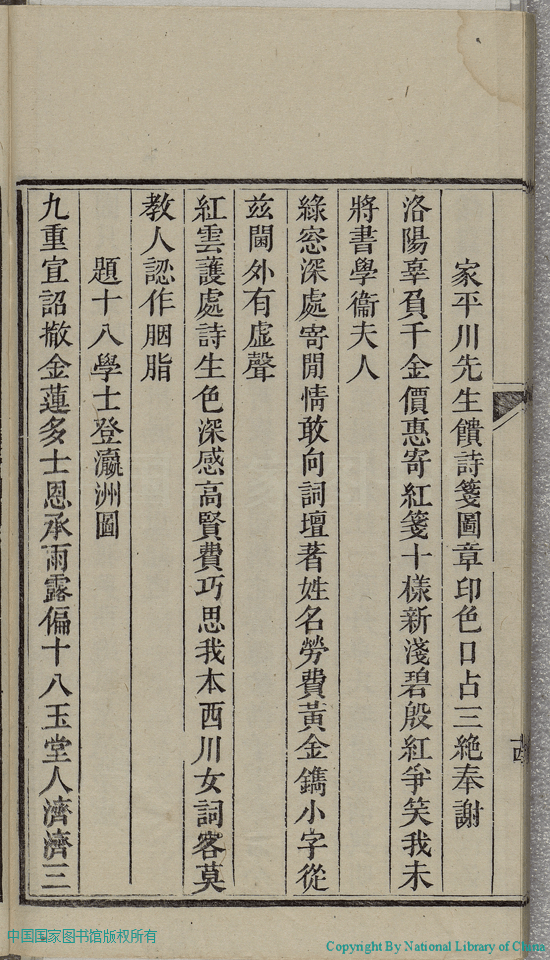 家平川先生饋詩箋圖章印色口占三絶奉謝
洛陽辜負千金價惠寄紅箋十樣新淺碧殷紅爭笑我未
將書學衞夫人
綠窓深處寄閒情敢向詞壇著姓名勞費黃金鐫小字從
兹閫外有虛聲
紅雲護處詩生色深感高賢費巧思我本西川女詞客莫
教人認作胭脂
題十八學士登瀛洲圖
九重宣詔撤金蓮多士恩承雨露偏十八玉堂人濟濟三
中国国家图书馆版权所有
Copyright By National Library of China